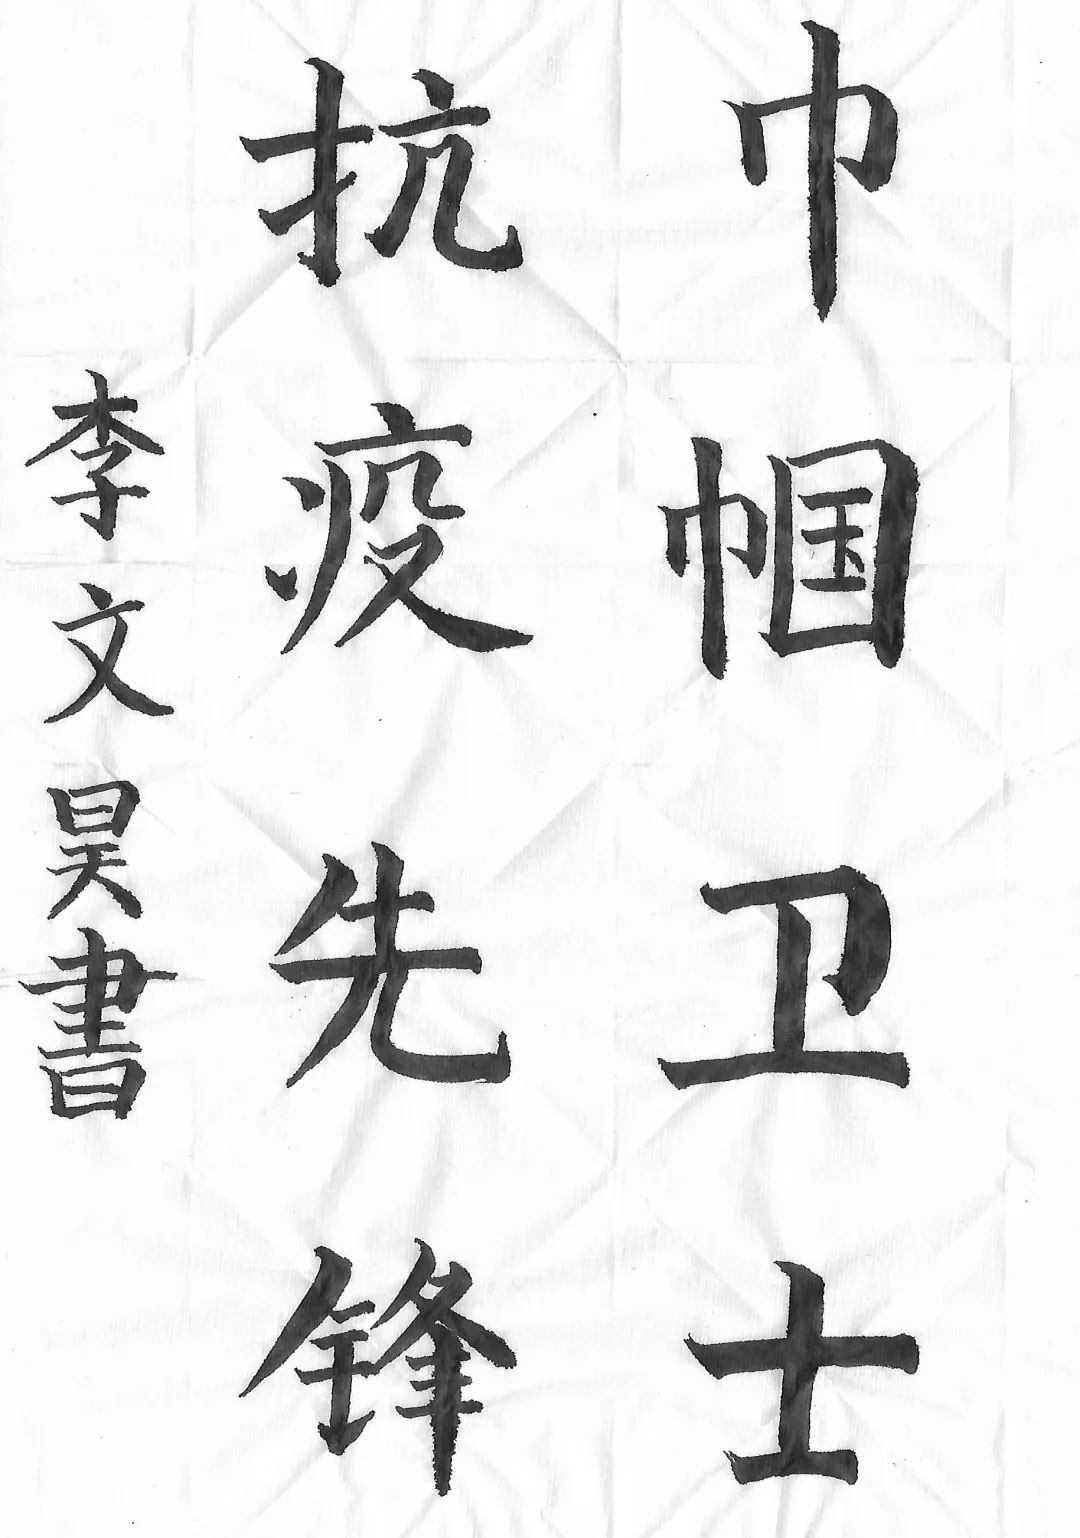 巾帼卫士
抗疫先锋
李文昊書